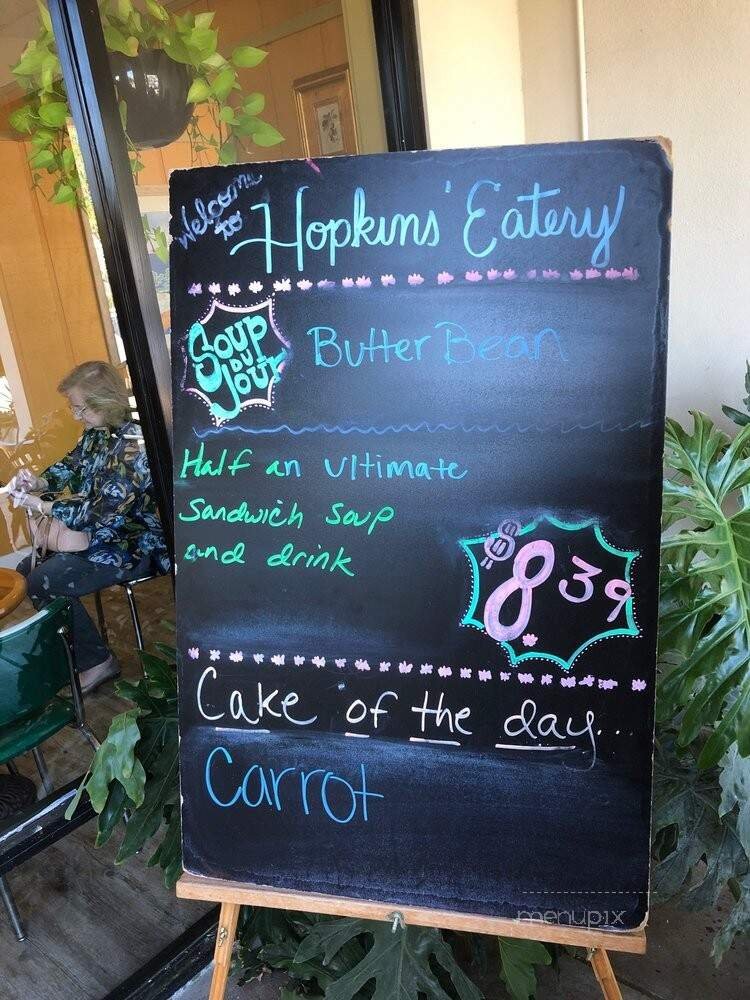 Welcome to Hopkins' Eatery
Soup du Jour Butter Bean
Half an ultimate
sandwich soup
and drink
$8 39
Cake of the day...
Carrot
menupix